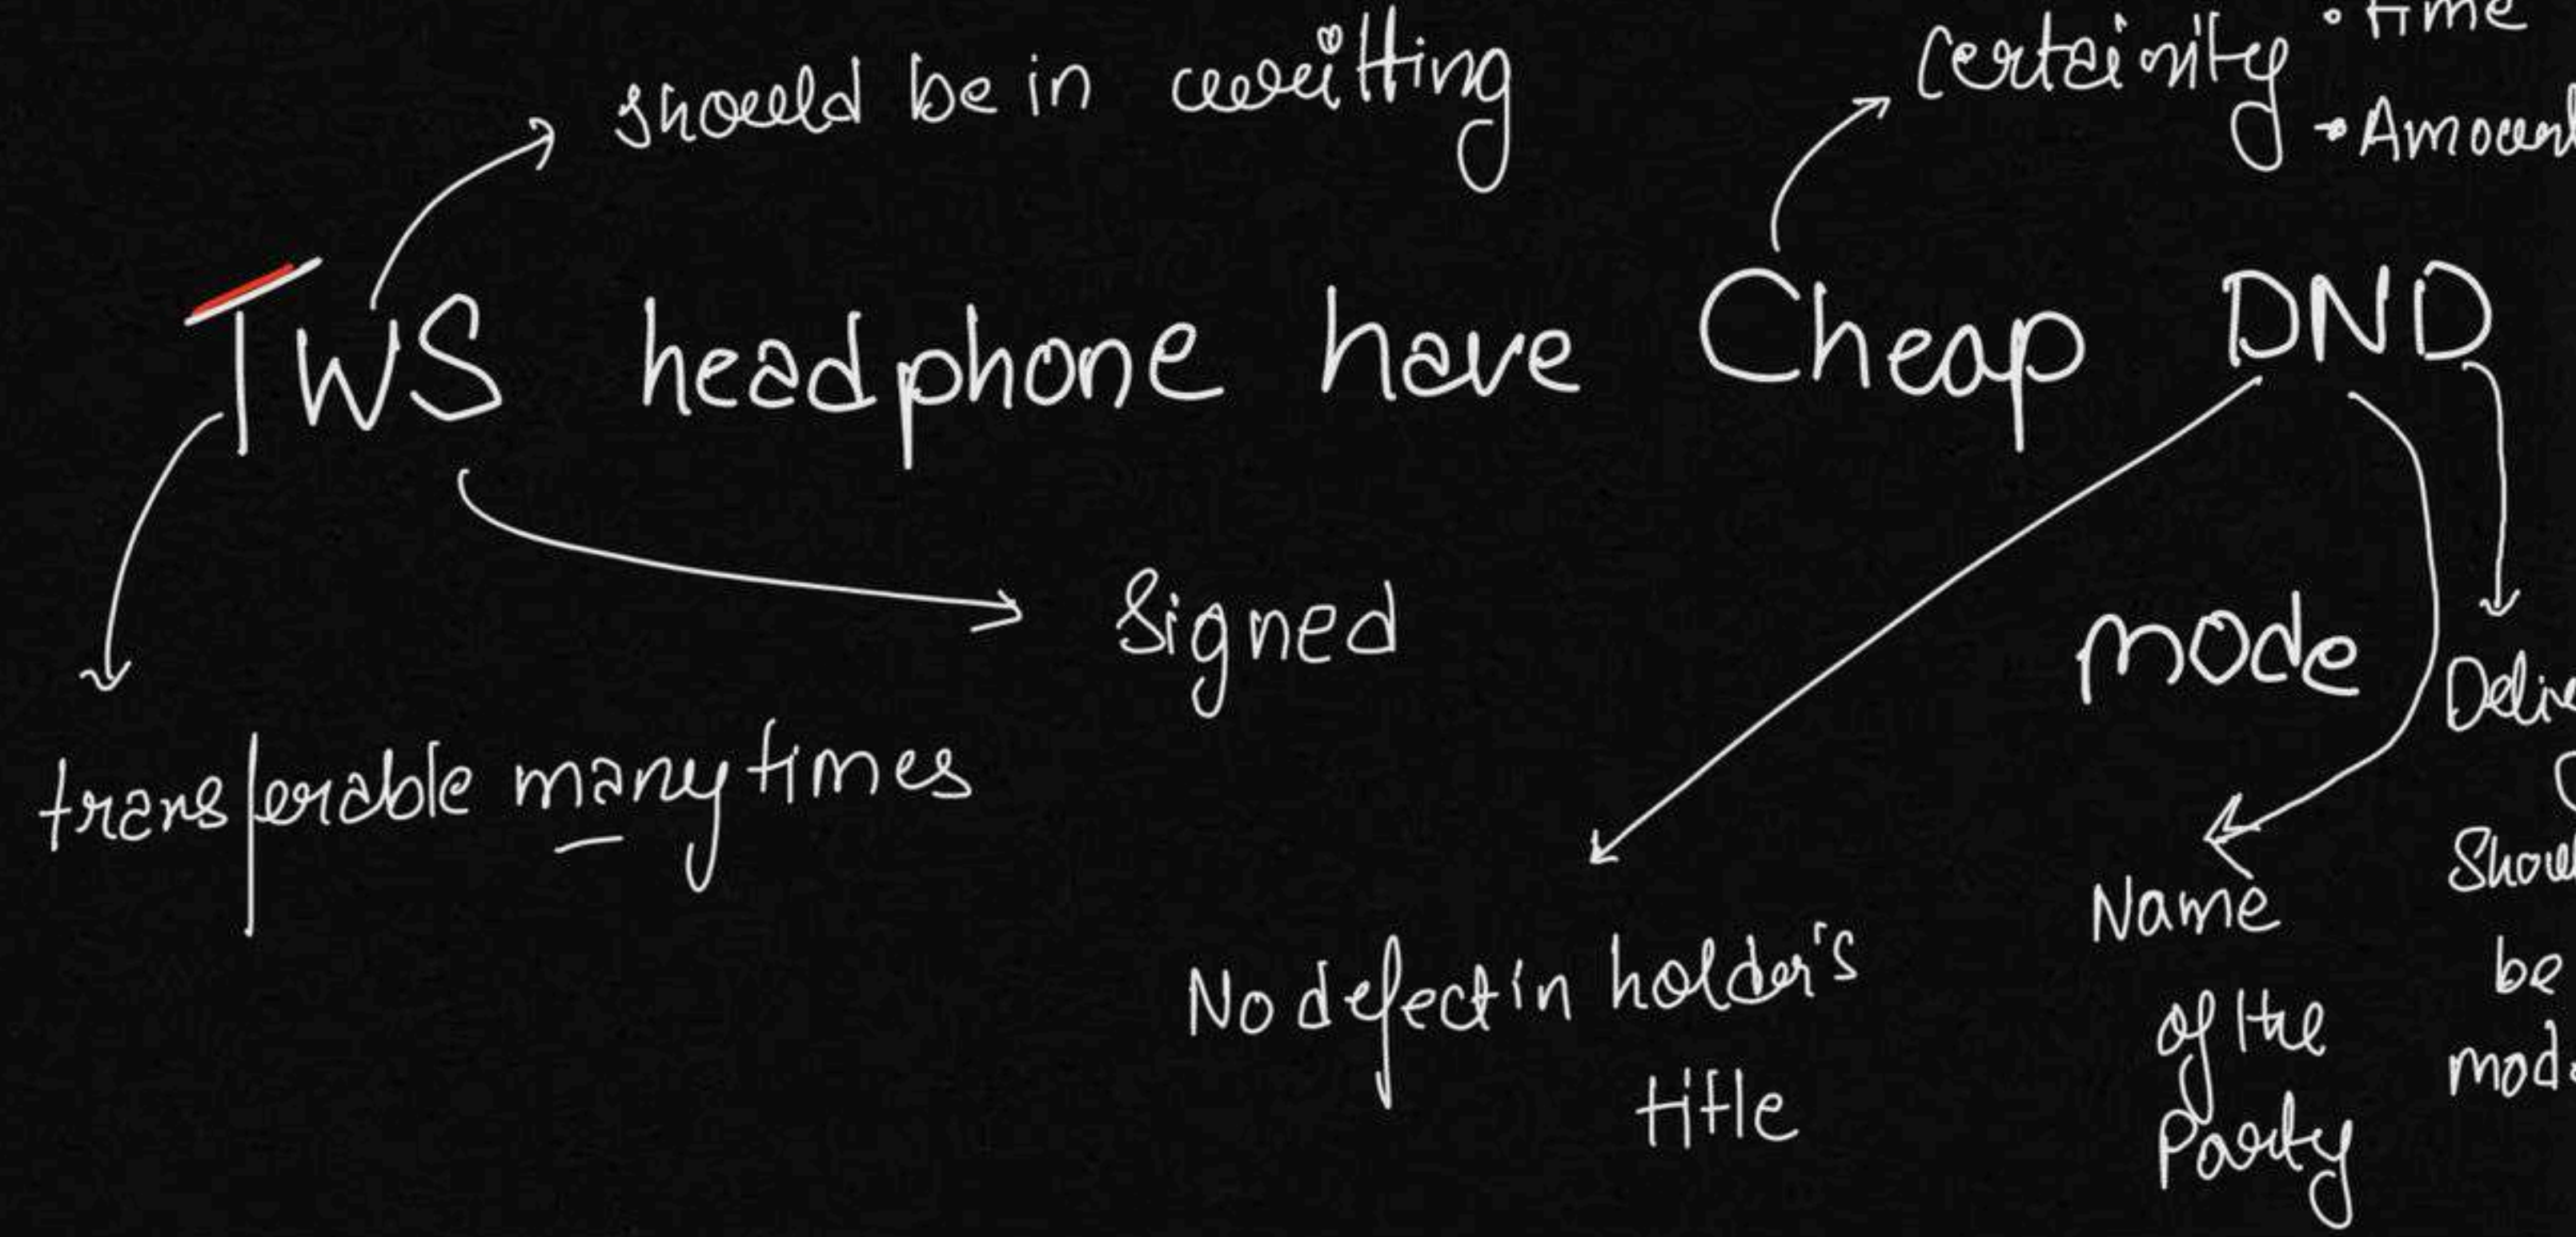 should be in writting
Certainity
• Time
• Amount
TWS headphone have Cheap DND
mode
Signed
transferable many times
No defect in holder's
title
Name
of the
Party
be